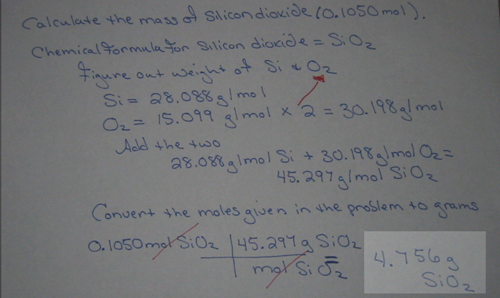 Calculate the mass of Silicon dioxide (0.1050 mol).
Chemical formula for Silicon dioxide = SiO2
Figure out weight of Si & O2
Si = 28.088 g/mol
O2 = 15.099 g/mol × 2 = 30.198 g/mol
Add the two
28.088 g/mol Si + 30.198 g/mol O2 =
45.297 g/mol SiO2
Convert the moles given in the problem to grams
0.1050 mol SiO2 | 45.297 g SiO2 =
mol SiO2
4.756 g
SiO2